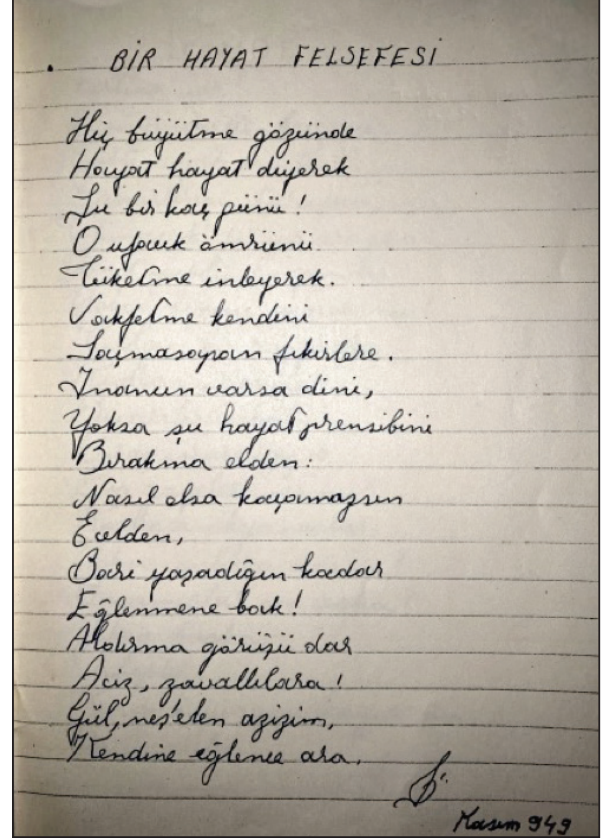 BİR HAYAT FELSEFESİ
Hiç büyütme gözünde
Hayat hayat diyerek
Şu bir kaç günü!
O ufacık ömrünü
Tüketme inleyerek.
Vakfetme kendini
Saçmasapan fikirlere.
İnanın varsa dini,
Yoksa şu hayat prensibini
Bırakma elden:
Nasıl olsa kaçamazsın
Ecelden,
Bari yaşadığın kadar
Eğlenmene bak!
Aldırma görüşü dar
Aciz, zavallılara!
Gül, neş'elen azizim,
Kendine eğlence ara.
Kasım 949